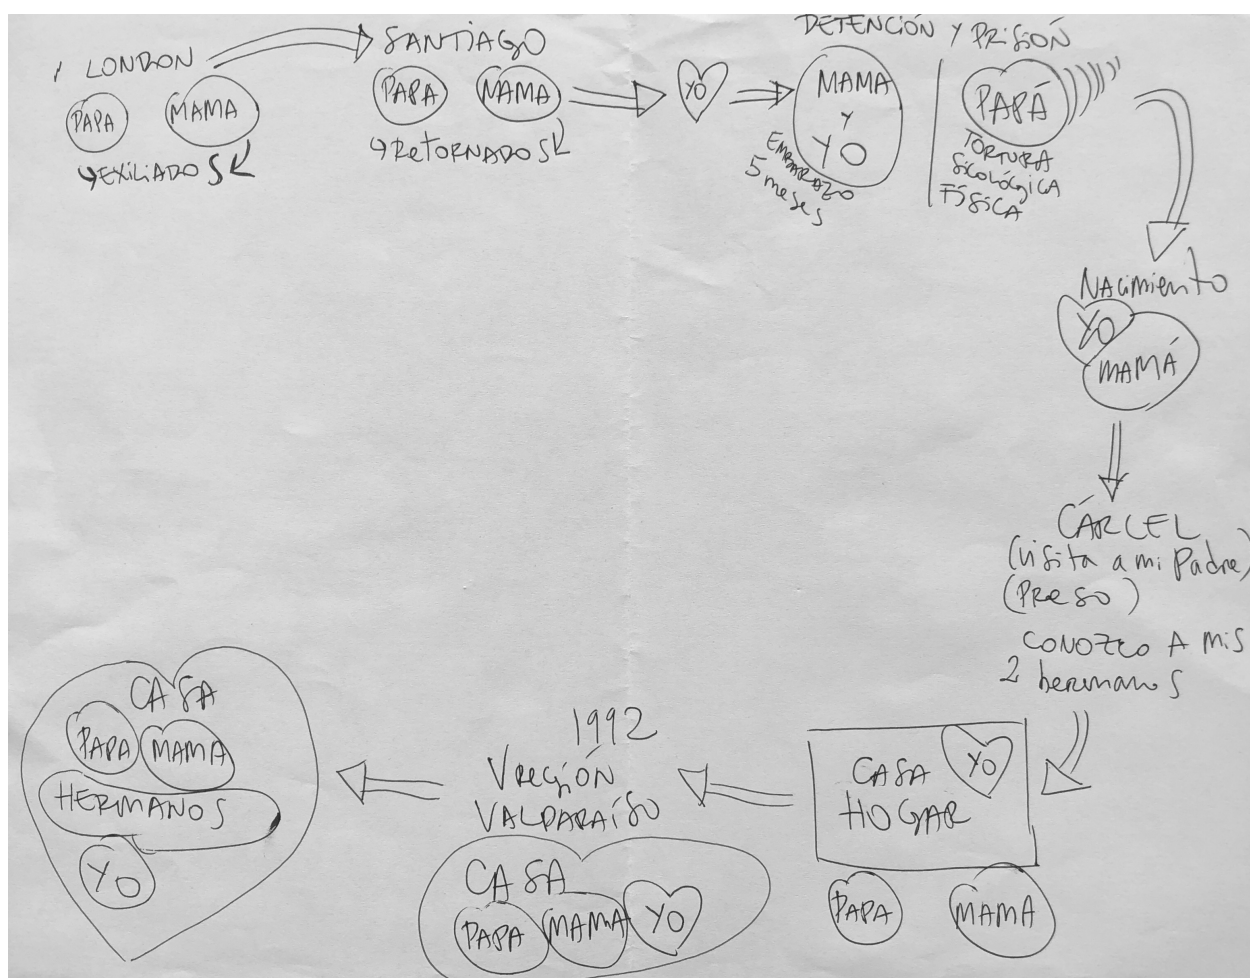 LONDON
PAPA
MAMA
EXILIADOS
SANTIAGO
PAPA
MAMA
RETORNADOS
YO
DETENCIÓN Y PRISIÓN
MAMA
Y
YO
EMBARAZO
5 meses
PAPÁ
TORTURA
SICOLÓGICA
FÍSICA
NACimiento
YO
MAMÁ
CÁRCEL
(visita a mi Padre)
(PReso)
CONOZCO A Mis
2 hermanos
CASA
HOGAR
YO
PAPA
MAMA
1992
V región
VALPARAÍSO
CASA
PAPA
MAMA
YO
CASA
PAPA
MAMA
HERMANOS
YO